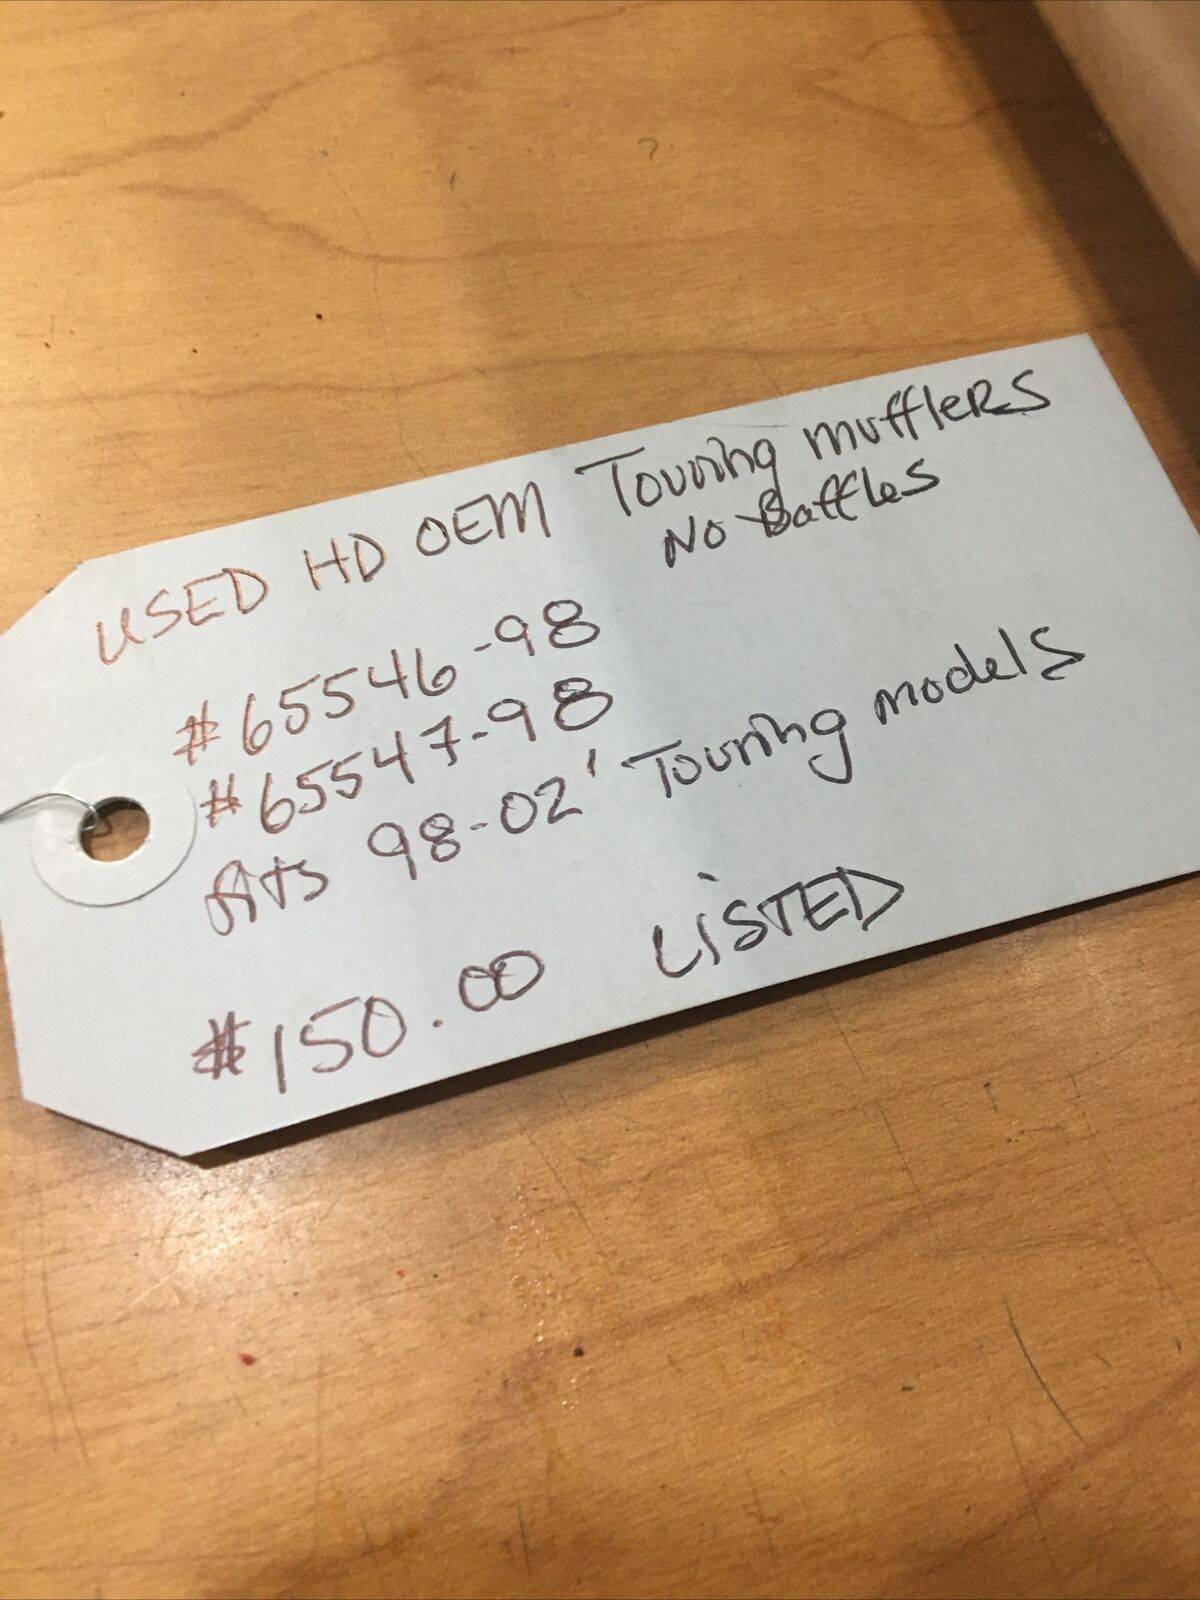 USED HD OEM Touring mufflers
No Baffles
#65546-98
#65547-98
fits 98-02' Touring models
$150.00 LiSTED